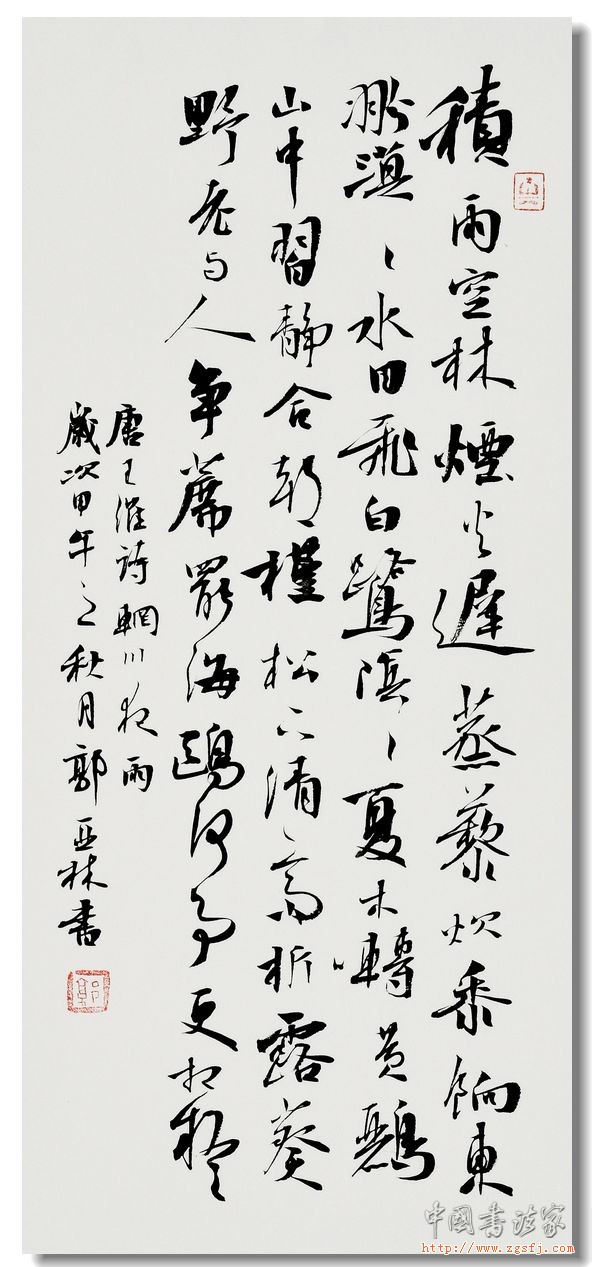 積雨空林煙火遲蒸藜炊黍餉東
漠〻水田飛白鷺陰〻夏木囀黃鸝
山中習靜合朝槿松下清齋折露葵
野老与人爭蓆罷海鷗何事更相疑
唐王維詩輞川夜雨
歲次甲午之秋月郭亞林書
中國書法家
http://www.zgsfj.com